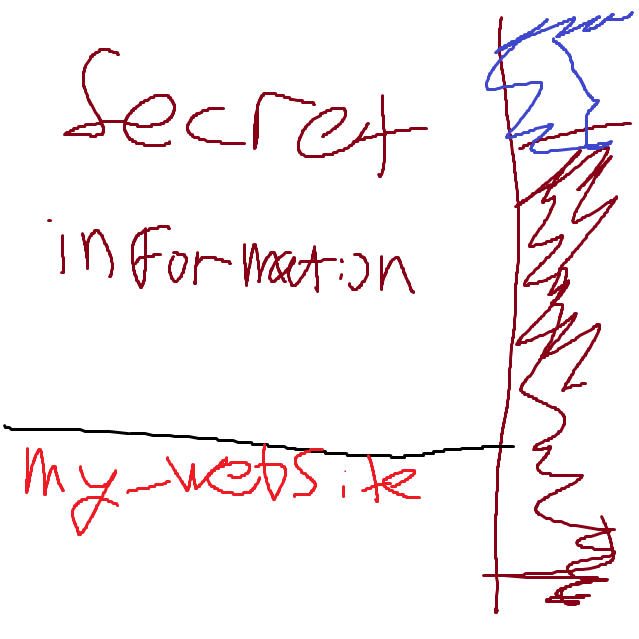 Secret
information
my-website